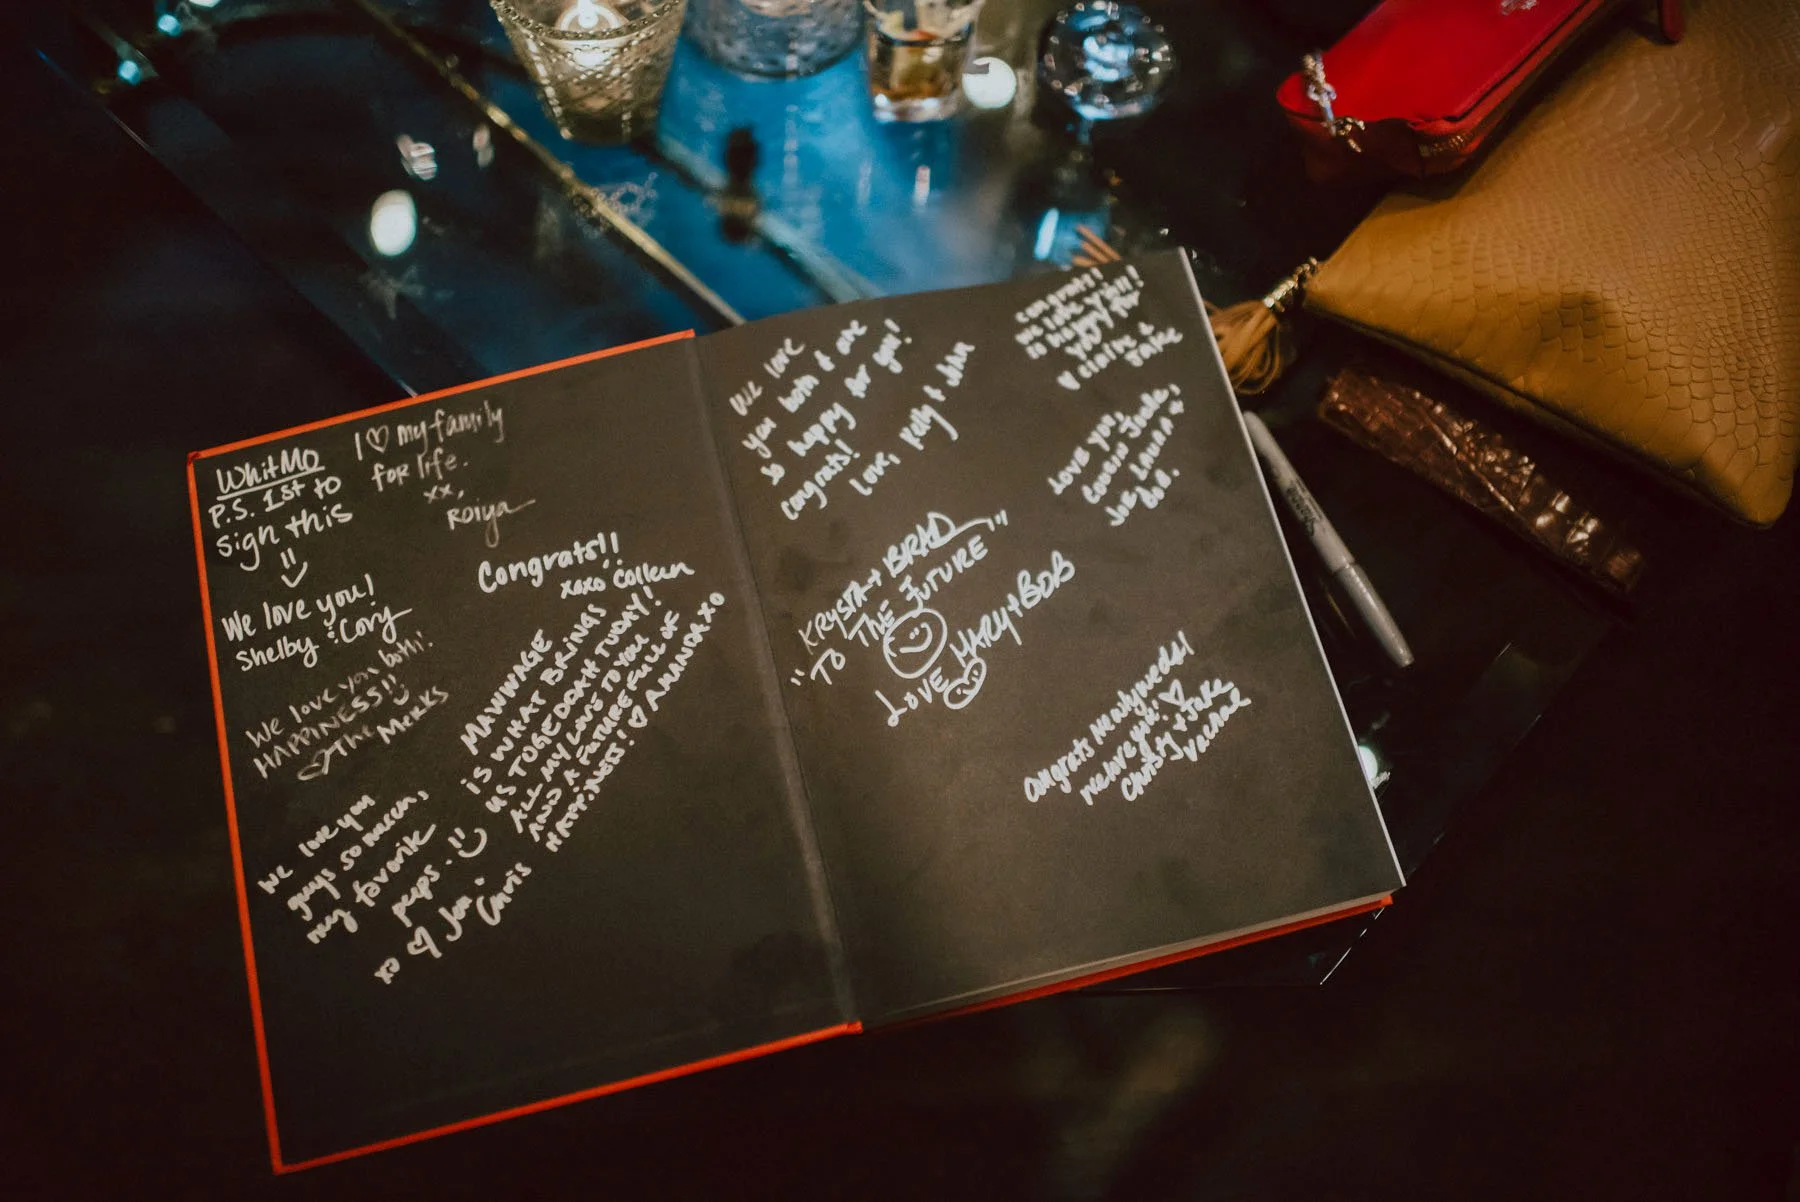 WhitMo
P.S. 1st to
sign this
I ♡ my family
for life.
xx,
Roiya
Congrats!!
xoxo Colleen
We love you!
Shelby & Cory
We love you both!
HAPPINESS!!
♡ The Marks
MAWWAGE
IS WHAT BRINGS
US TOGEDDAH TODAY!
ALL MY LOVE TO YOU
AND A FUTURE FULL OF
HAPPINESS! ♡ AMANDA XO
We love you
guys so much,
my favorite
peeps.
xo ♡ Jon
Chris
We love
you both & are
so happy for you!
congrats!
Love, Kelly & John
congrats!
We love you!!!
so happy for
you
Jake
Love you,
Cousin Jude,
Joe, Laura &
"KRYSTA + BRAD
TO THE FUTURE"
LOVE MARY + BOB
congrats Newlyweds!
we love you! ♡
Christy + Jake